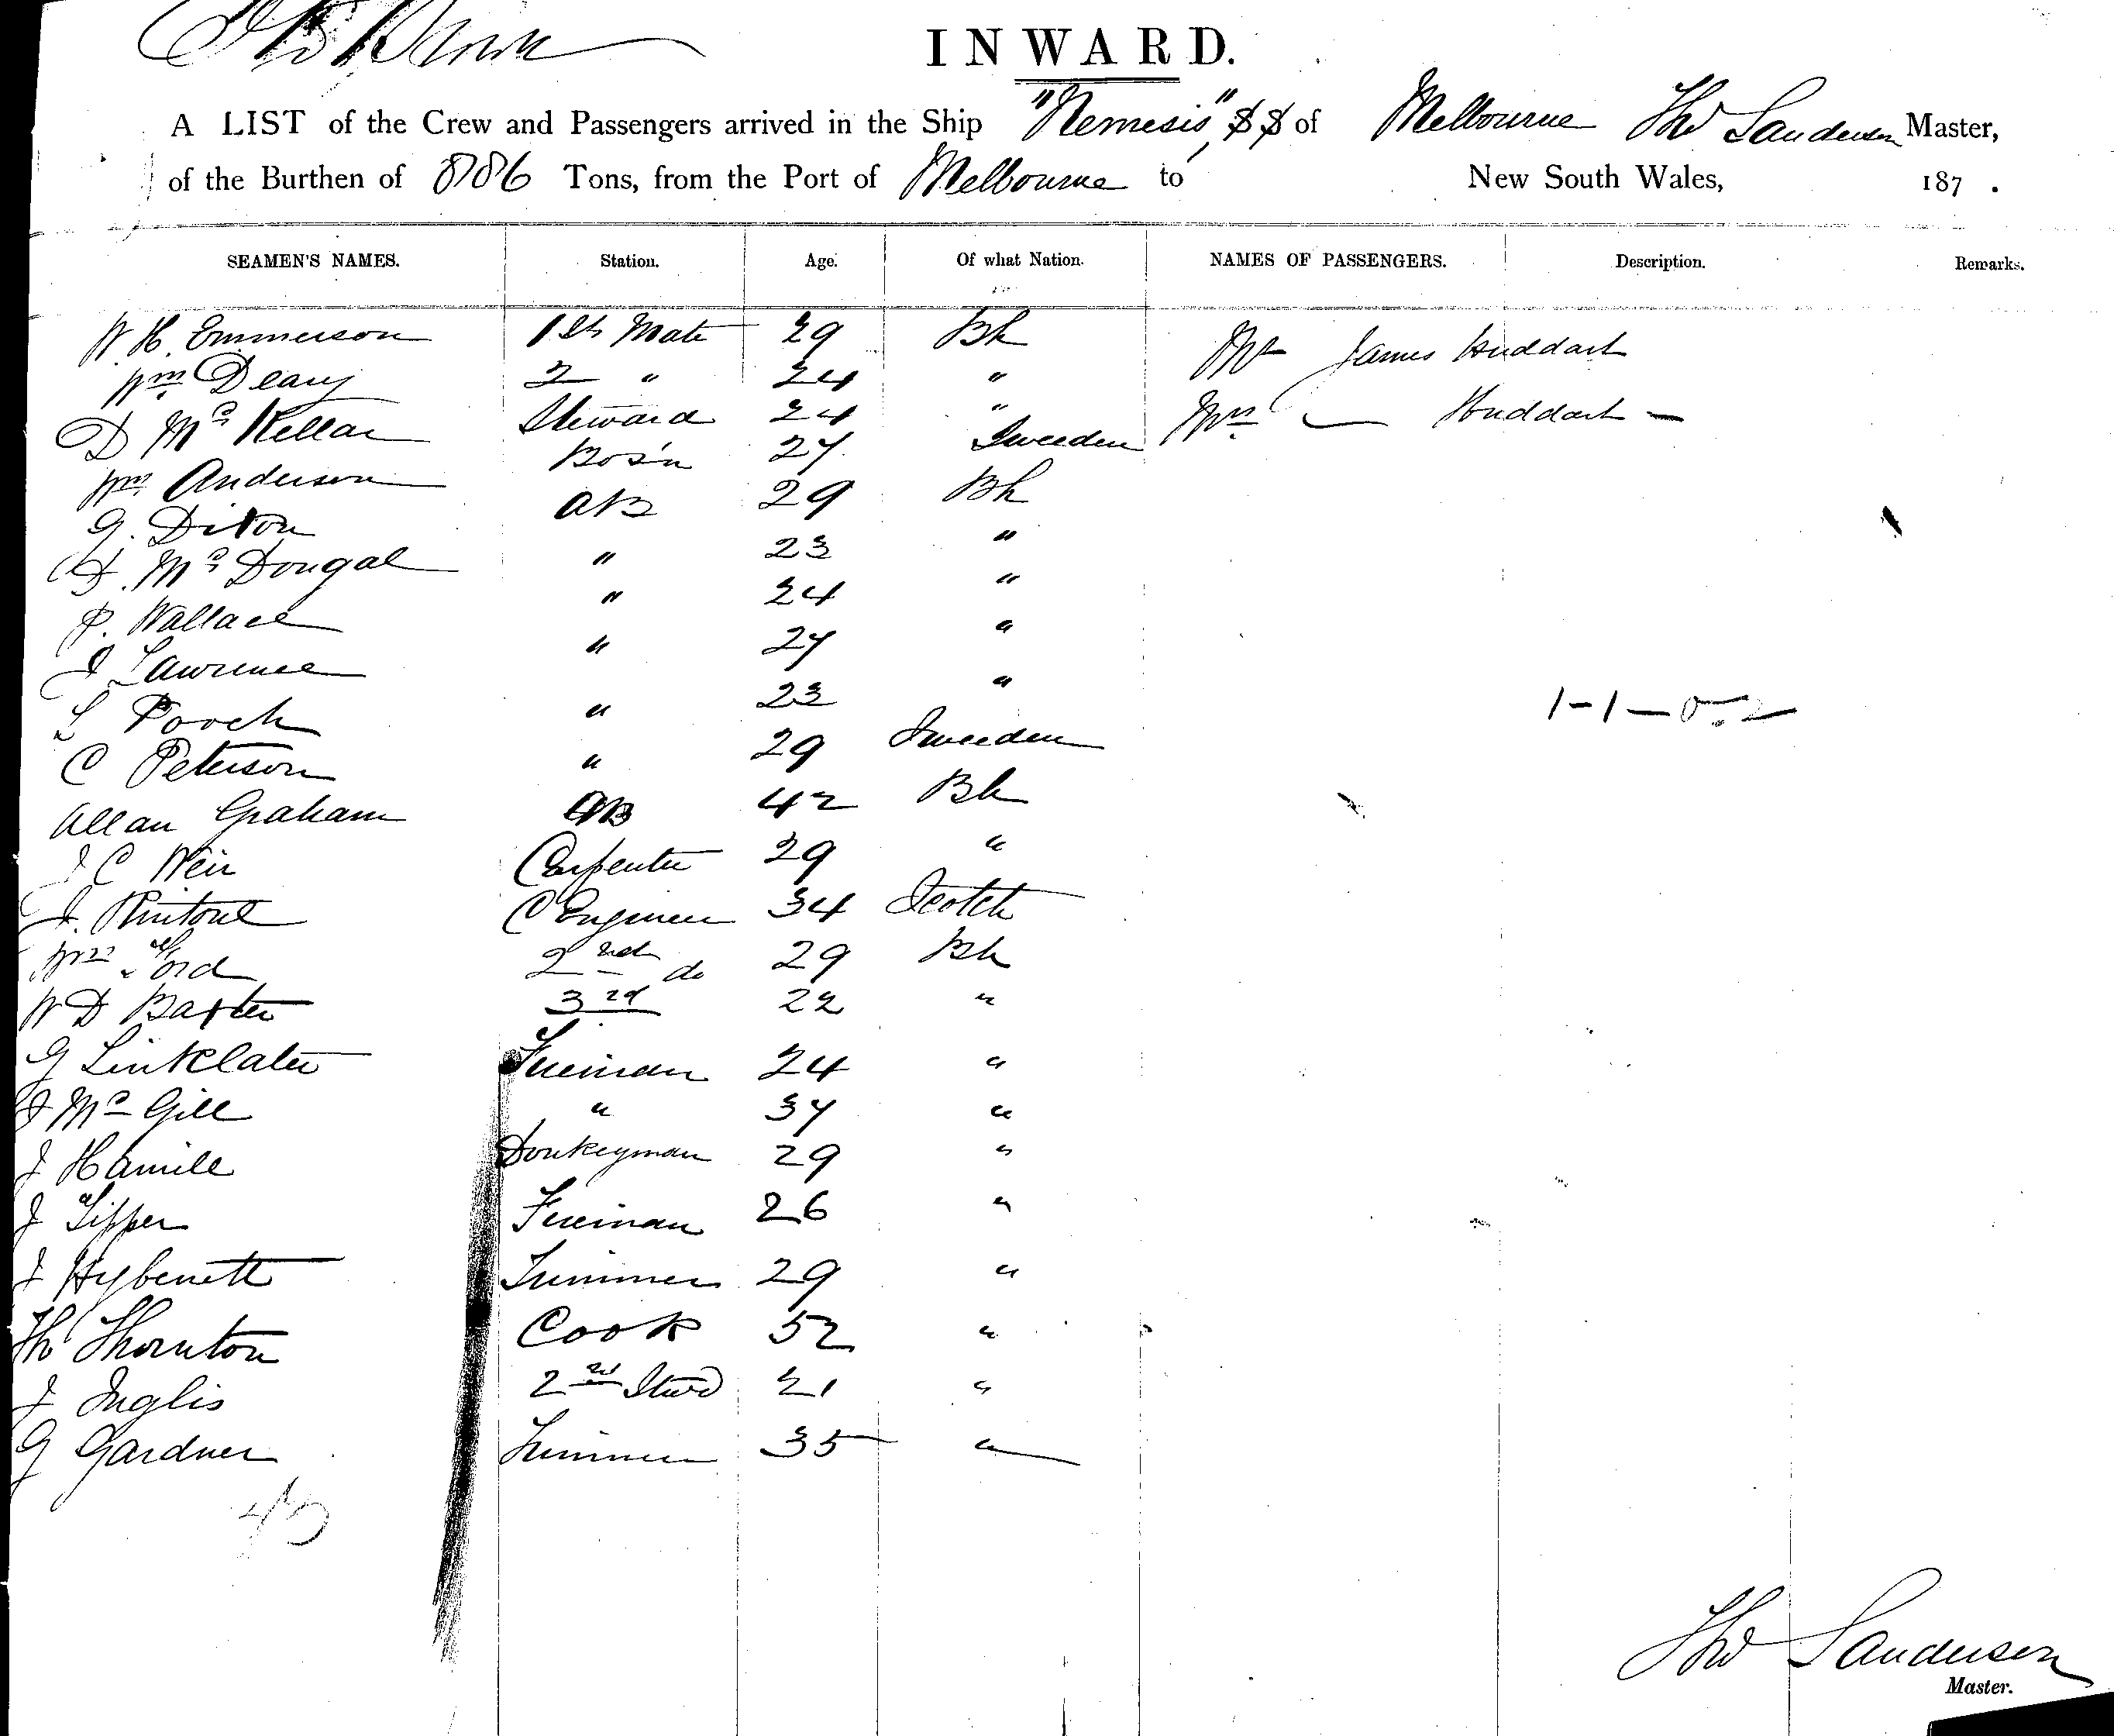 INWARD.
A LIST of the Crew and Passengers arrived in the Ship "Nemesis", SS of Melbourne Thos Sanderson Master,
of the Burthen of 886 Tons, from the Port of Melbourne to New South Wales, 187 .
SEAMEN'S NAMES. Station. Age. Of what Nation. NAMES OF PASSENGERS. Description. Remarks.
W. H. Emmerson 1st Mate 29 Bh Mr James Huddart
Wm Deary 2 " 24 " Mrs — Huddart —
D McKellar Steward 24 "
Wm Anderson Bos'n 27 Sweeden
G. Dixon AB 29 Bh
McDougal " 23 "
P. Wallace " 24 "
J Lawrence " 27 "
L Pooch " 23 "
C Peterson " 29 Sweeden
Allan Graham AB 42 Bh
J C Weir Carpenter 29 "
J. Rintoul C Engineer 34 Scotch
Wm Ford 2nd do 29 Bh
W D Baxter 3rd 22 "
G Linklater Fireman 24 "
J McGill " 37 "
J Hamill Donkeyman 29 "
J Tipper Fireman 26 "
J Hybenett Trimmer 29 "
Ths Thornton Cook 52 "
J Inglis 2nd Stwd 21 "
G Gardner Trimmer 35 "
Thos Sanderson
Master.